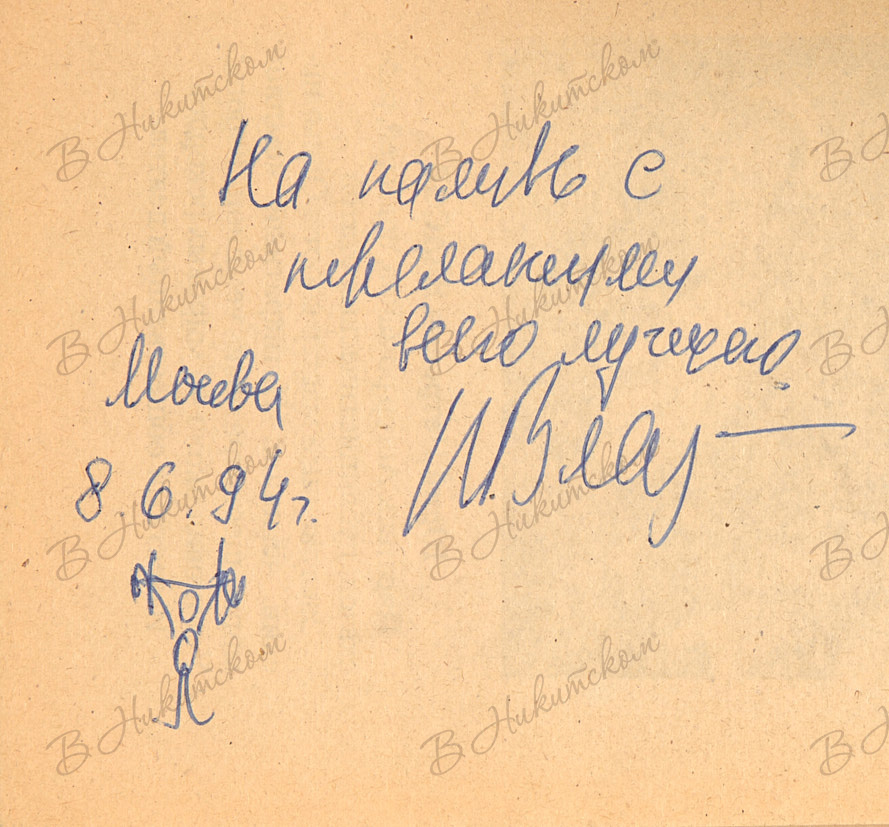 На память с
пожеланиями
всего лучшего
Москва
И. Влад
8.6.94г.
В Никитском
В Никитском
В Никитском
В Никитском
В Никитском
В Никитском
В Никитском
В Никитском